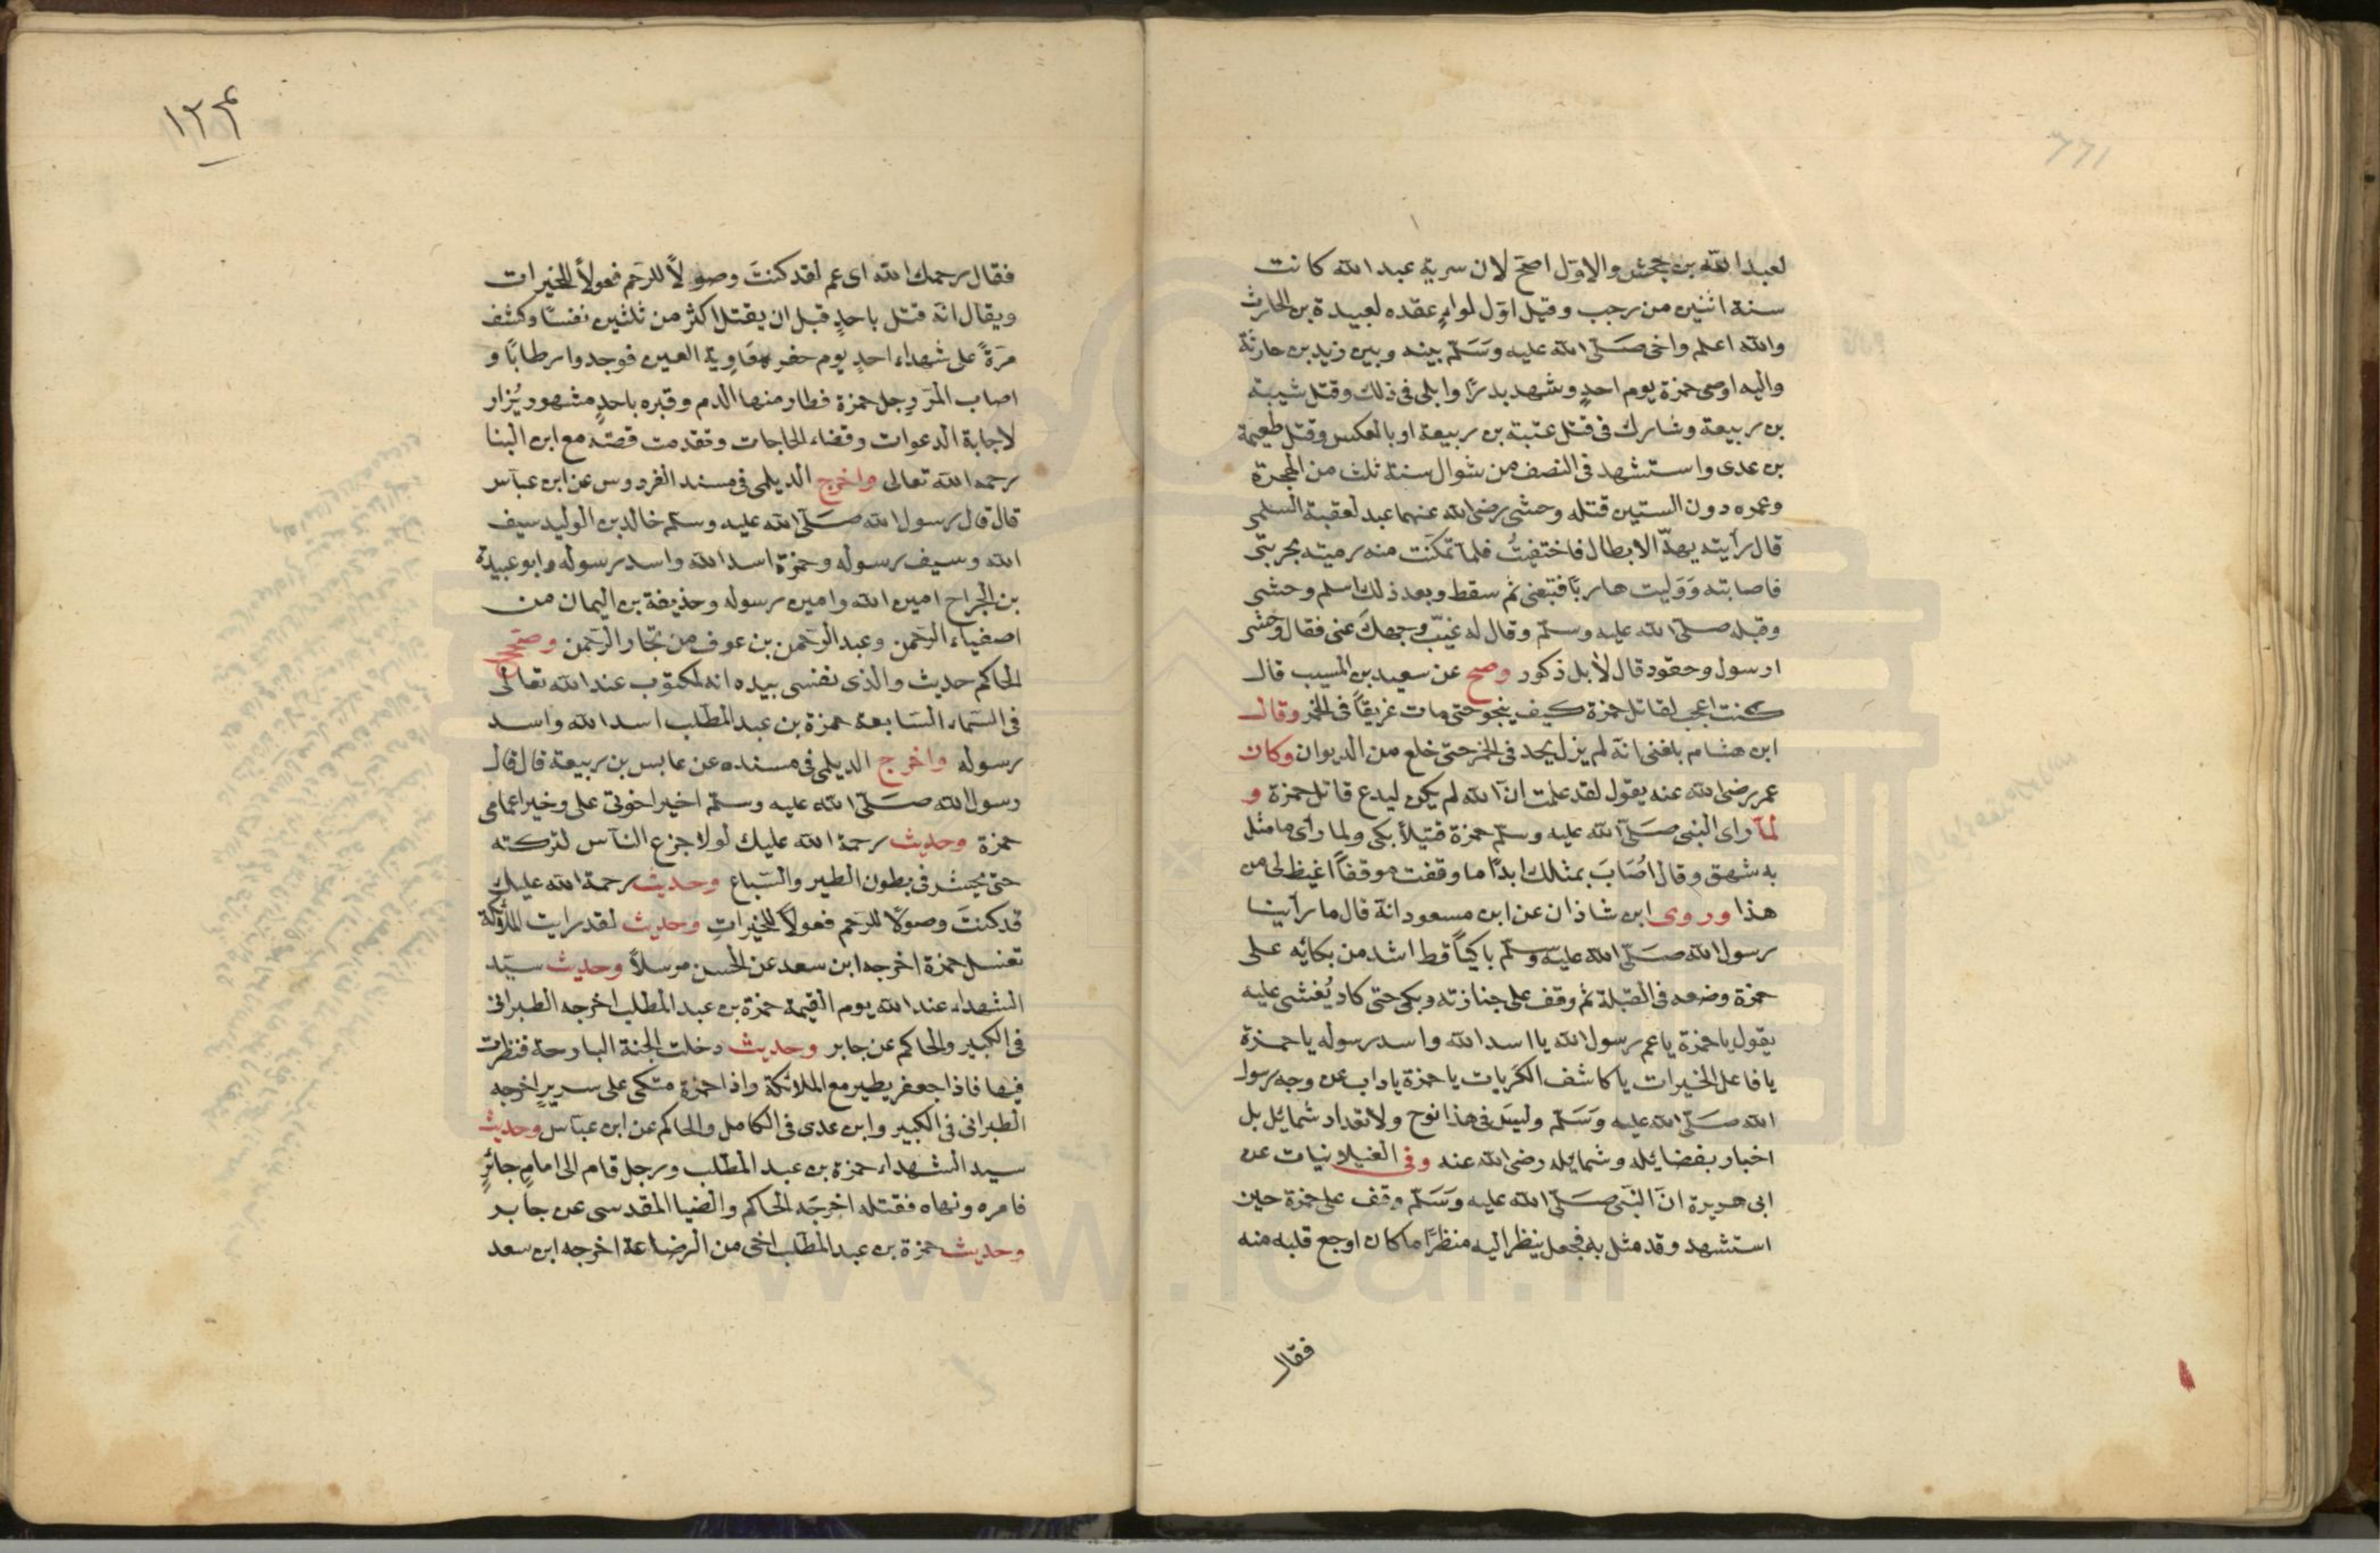 لعبد الله بن جحش والاول اصح لان سرية عبد الله كانت
سنة اثنين من رجب وقيل اول لواءٍ عقده لعبيدة بن الحارث
والله اعلم واخى صَلّى الله عليه وسَلّم بينه وبين زيد بن حارثة
واليه اوصى حمزة يوم احدٍ وشهد بدرًا وابلى فى ذلك وقتل شيبة
بن ربيعة وشارك فى قتل عتبة بن ربيعة او بالعكس وقتل طعيمة
بن عدى واستشهد فى النصف من شوال سنة ثلث من الهجرة
وعمره دون الستين قتله وحشى رضى الله عنهما عبد لعقبة السلمى
قال رأيته يهدّ الابطال فاختفيتُ فلما تمكنت منه رميته بحربتى
فاصابته وَوَليت هاربًا فتبعنى ثم سقط وبعد ذلك اسلم وحشى
وقبله صلّى الله عليه وسلّم وقال له غيّب وجهكَ عنى فقال وحشى
ارسول وحقود قال لا بل ذكور وصح عن سعيد بن المسيب قال
كنت اعجب لقاتل حمزة كيف ينجو حتى مات غريقاً فى الخمر وقال
ابن هشام بلغنى انه لم يزل يحد فى الخمر حتى خلع من الديوان وكان
عمر رضى الله عنه يقول لقد علمت ان الله لم يكن ليدع قاتل حمزة و
لمّا راى النبى صَلّى الله عليه وسلّم حمزة قتيلاً بكى ولما رأى ما مثل
به شهق وقال اُصَابَ بمثلك ابدًا ما وقفت موقفاً اغيظ لى من
هذا وروى ابن شاذان عن ابن مسعود انه قال ما رأينا
رسول الله صَلّى الله عليه وسلّم باكياً قط اشد من بكائه على
حمزة وضعه فى القبلة ثم وقف على جنازته وبكى حتى كاد يُغشى عليه
يقول يا حمزة يا عم رسول الله يا اسد الله واسد رسوله يا حمزة
يا فاعل الخيرات يا كاشف الكربات يا حمزة يا داب عن وجه رسول
الله صَلّى الله عليه وَسَلّم وليسَ فى هذا نوح ولا تعداد شمائل بل
اخبار بفضايله وشمايله رضى الله عنه وفى الغيلانيات عن
ابى هريرة انّ النبى صَلّى الله عليه وَسَلّم وقف على حمزة حين
استشهد وقد مثل به فجعل ينظر اليه منظرًا ما كان اوجع قلبه منه
فقال
١٢٤
فقال رحمك الله اى عم لقد كنتَ وصولاً للرّحم فعولاً للخيرات
ويقال انه قتل باحدٍ قبل ان يقتل اكثر من ثلثين نفسًا وكشف
مَرّةً على شهداء احدٍ يوم حفر معاوية العين فوجدوا رطابًا و
اصاب المَر رجل حمزة فطار منها الدم وقبره باحدٍ مشهور يُزار
لاجابة الدعوات وقضاء الحاجات وتقدمت قصته مع ابن البنا
رحمه الله تعالى واخرج الديلمى فى مسند الفردوس عن ابن عباس
قال قال رسول الله صَلّى الله عليه وسلّم خالد بن الوليد سيف
الله وسيف رسوله وحمزة اسد الله واسد رسوله وابو عبيدة
بن الجراح امين الله وامين رسوله وحذيفة بن اليمان من
اصفياء الرحمن وعبد الرحمن بن عوف من تجار الرحمن وصحّح
الحاكم حديث والذى نفسى بيده انه لمكتوب عند الله تعالى
فى السَماء السَابعة حمزة بن عبد المطّلب اسد الله واسد
رسوله واخرج الديلمى فى مسنده عن عابس بن ربيعة قال قال
رسول الله صَلّى الله عليه وسلّم اخير اخوتى على وخير اعمامى
حمزة وحديث رحمة الله عليك لولا جزع النّاس لتركته
حتى يحشر فى بطون الطير والسّباع وحديث رحمة الله عليك
قد كنتَ وصولًا للرّحم فعولاً للخيراتِ وحديث لقد رايت الملائكة
تغسل حمزة اخرجه ابن سعد عن الحسن مرسلاً وحديث سيّد
الشهداء عند الله يوم القيمة حمزة بن عبد المطّلب اخرجه الطبرانى
فى الكبير والحاكم عن جابر وحديث دخلت الجنة البارحة فنظرت
فيها فاذا جعفر يطير مع الملائكة واذا حمزة متكى على سريرٍ اخرجه
الطبرانى فى الكبير وابن عدى فى الكامل والحاكم عن ابن عباس وحديث
سيد الشهداء حمزة بن عبد المطّلب ورجل قام الى امامٍ جائرٍ
فامره ونهاه فقتله اخرجَه الحاكم والضيا المقدسى عن جابر
وحديث حمزة بن عبد المطّلب اخى من الرضاعة اخرجه ابن سعد